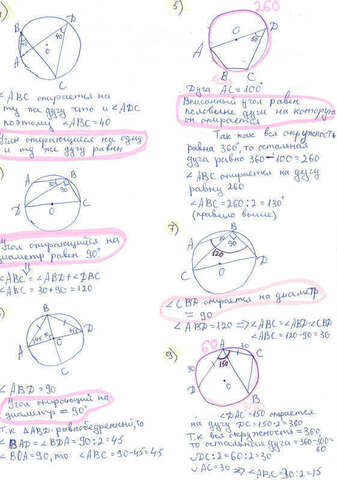 )
B
D
40
A
O
C
∠ABC опирается на
ту же дугу что и ∠ADC
поэтому ∠ABC=40
Углы опирающиеся на одну
и ту же дугу равны
)
A
B
30
90
D
O
C
Угол опирающийся на
диаметр равен 90°
∠ABC=∠ABD+∠DBC
∠ABC=30+90=120
)
B
A
D
45
O
C
∠ABD=90
Угол опирающий на
диаметр = 90°
Т.к ΔABD равнобедренный, то
∠BAD=∠BDA=90:2=45
∠BDA=90, то ∠ABC=90-45=45
5)
260
O
D
A
B
C
Дуга AC=100°
Вписанный угол равен
половине дуги на которую
он опирается
Так как вся окружность
равна 360°, то остальная
дуга равно 360-100=260
∠ABC опирается на дугу
равну 260
∠ABC=260:2=130°
(правило выше)
7)
A
B
90
C
120
D
O
∠CBD опирается на диаметр
= 90
∠ABD=120 => ∠ABC=∠ABD-∠CBD
∠ABC=120-90=30
9)
60
A
30
C
150
B
O
D
∠DAC=150 опирается
на дугу DC=150·2=300
Т.к вся окружность = 360,
то остальная дуга = 360-300=60
∪DC:2=60:2=30
∪AC=30 => ∠ABC=30:2=15